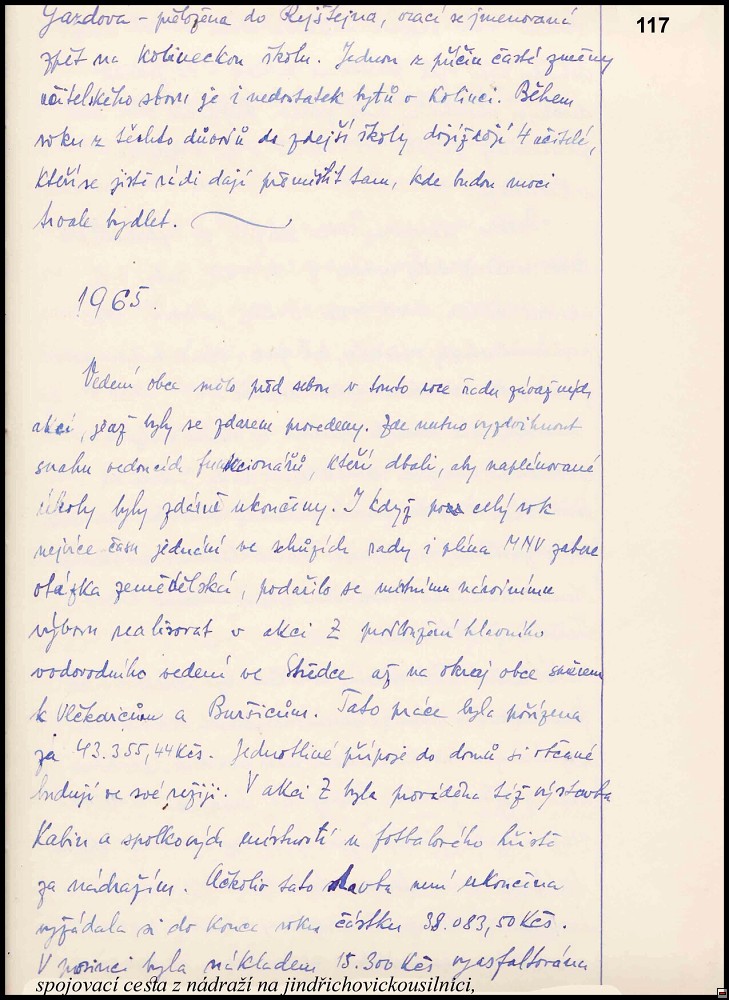 117
Gazdova - přeložena do Rejštejna, vrací se jmenovaná
zpět na Kolineckou školu. Jednou z příčin časté změny
učitelského sboru je i nedostatek bytů v Kolinci. Během
roku z těchto důvodů do zdejší školy dojíždějí 4 učitelé,
kteří se jistě rádi dají přemístit tam, kde budou moci
trvale bydlet.
1965.
Vedení obce mělo před sebou v tomto roce řadu závažných
akcí, jež byly se zdarem provedeny. Zde nutno vyzdvihnout
snahu vedoucích funkcionářů, kteří dbali, aby naplánované
úkoly byly zdárně ukončeny. I když celý rok
nejvíce času jednání ve schůzích rady i pléna MNV zabere
otázka zemědělská, podařilo se místnímu národnímu
výboru realisovat v akci Z prodloužení hlavního
vodovodního vedení ve Středce až na okraj obce směrem
k Vlčkovicům a Buršicům. Tato práce byla pořízena
za 43.355,44 Kčs. Jednotlivé přípoje do domů si občané
budují ve své režiji. V akci Z byla prováděna též výstavba
Kabin a spolkových místností u fotbalového hřiště
za nádražím. Ačkoliv tato stavba není ukončena
vyžádala si do konce roku částku 38.083,50 Kčs.
V prosinci byla nákladem 15.300 Kčs vyasfaltována
spojovací cesta z nádraží na jindřichovickousilnici,